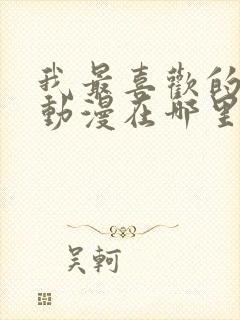 我最喜歡的
動漫在哪里
吴軻